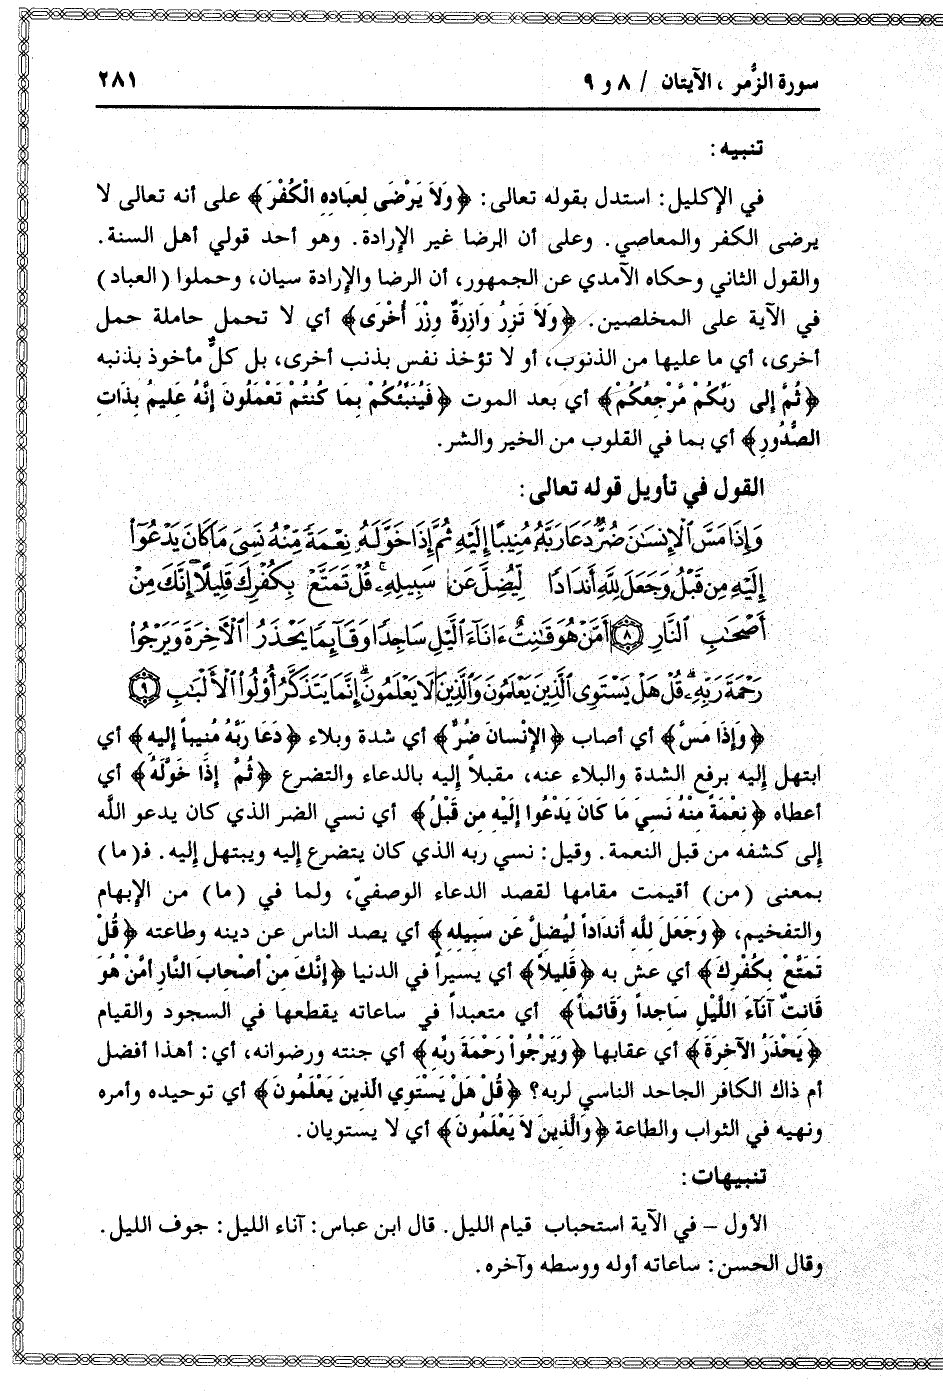 سورة الزُّمر ، الآيتان / ٨ و ٩ ٢٨١
تنبيه:
في الإكليل: استدل بقوله تعالى: ﴿وَلاَ يَرْضَى لِعبَادِهِ الْكُفْرَ﴾ على أنه تعالى لا
يرضى الكفر والمعاصي. وعلى أن الرضا غير الإرادة. وهو أحد قولي أهل السنة.
والقول الثاني وحكاه الآمدي عن الجمهور، أن الرضا والإرادة سيان، وحملوا (العباد)
في الآية على المخلصين. ﴿وَلاَ تَزِرُ وَازِرَةٌ وِزْرَ أُخْرَى﴾ أي لا تحمل حاملة حمل
أخرى، أي ما عليها من الذنوب، أو لا تؤخذ نفس بذنب أخرى، بل كلٌّ مأخوذ بذنبه
﴿ثُمَّ إلى رَبِّكُمْ مَّرْجِعُكُمْ﴾ أي بعد الموت ﴿فَيُنَبِّئُكُمْ بِمَا كُنتُمْ تَعْمَلُونَ إِنَّهُ عَلِيمٌ بِذَاتِ
الصُّدُورِ﴾ أي بما في القلوب من الخير والشر.
القول في تأويل قوله تعالى:
وَإِذَا مَسَّ ٱلْإِنسَٰنَ ضُرٌّ دَعَا رَبَّهُۥ مُنِيبًا إِلَيْهِ ثُمَّ إِذَا خَوَّلَهُۥ نِعْمَةً مِّنْهُ نَسِىَ مَا كَانَ يَدْعُوٓا۟
إِلَيْهِ مِن قَبْلُ وَجَعَلَ لِلَّهِ أَندَادًا لِّيُضِلَّ عَن سَبِيلِهِۦ ۚ قُلْ تَمَتَّعْ بِكُفْرِكَ قَلِيلًا ۖ إِنَّكَ مِنْ
أَصْحَٰبِ ٱلنَّارِ ۝٨ أَمَّنْ هُوَ قَٰنِتٌ ءَانَآءَ ٱلَّيْلِ سَاجِدًا وَقَآئِمًا يَحْذَرُ ٱلْءَاخِرَةَ وَيَرْجُوا۟
رَحْمَةَ رَبِّهِۦ ۗ قُلْ هَلْ يَسْتَوِى ٱلَّذِينَ يَعْلَمُونَ وَٱلَّذِينَ لَا يَعْلَمُونَ ۗ إِنَّمَا يَتَذَكَّرُ أُو۟لُوا۟ ٱلْأَلْبَٰبِ ۝٩
﴿وَإِذَا مَسَّ﴾ أي أصاب ﴿الإِنْسانَ ضُرٌّ﴾ أي شدة وبلاء ﴿دَعَا رَبَّهُ مُنيباً إليه﴾ أي
ابتهل إليه برفع الشدة والبلاء عنه، مقبلاً إليه بالدعاء والتضرع ﴿ثُمَّ إِذَا خَوَّلَهُ﴾ أي
أعطاه ﴿نِعْمَةً مِنْهُ نَسِيَ مَا كَانَ يَدْعُوا إِلَيْهِ مِن قَبْلُ﴾ أي نسي الضر الذي كان يدعو الله
إلى كشفه من قبل النعمة. وقيل: نسي ربه الذي كان يتضرع إليه ويبتهل إليه. فـ(ما)
بمعنى (من) أقيمت مقامها لقصد الدعاء الوصفيّ، ولما في (ما) من الإبهام
والتفخيم، ﴿وَجَعَلَ للَّهِ أَندَاداً لِيُضلَّ عَن سَبِيله﴾ أي يصد الناس عن دينه وطاعته ﴿قُلْ
تَمَتَّعْ بِكُفْرِكَ﴾ أي عش به ﴿قَلِيلاً﴾ أي يسيراً في الدنيا ﴿إِنَّكَ مِنْ أصْحَابَ النَّارِ أمَّنْ هُوَ
قَانتٌ آنَآءَ اللَّيْلِ سَاجِداً وَقَائماً﴾ أي متعبداً في ساعاته يقطعها في السجود والقيام
﴿يَحْذَرُ الآخِرَةَ﴾ أي عقابها ﴿وَيَرْجُواْ رَحْمَةَ رَبِّه﴾ أي جنته ورضوانه، أي: أهذا أفضل
أم ذاك الكافر الجاحد الناسي لربه؟ ﴿قُلْ هَلْ يَسْتَوِي الَّذِينَ يَعْلَمُونَ﴾ أي توحيده وأمره
ونهيه في الثواب والطاعة ﴿وَالَّذِينَ لاَ يَعْلَمُونَ﴾ أي لا يستويان.
تنبيهات:
الأول – في الآية استحباب قيام الليل. قال ابن عباس: آناء الليل: جوف الليل.
وقال الحسن: ساعاته أوله ووسطه وآخره.